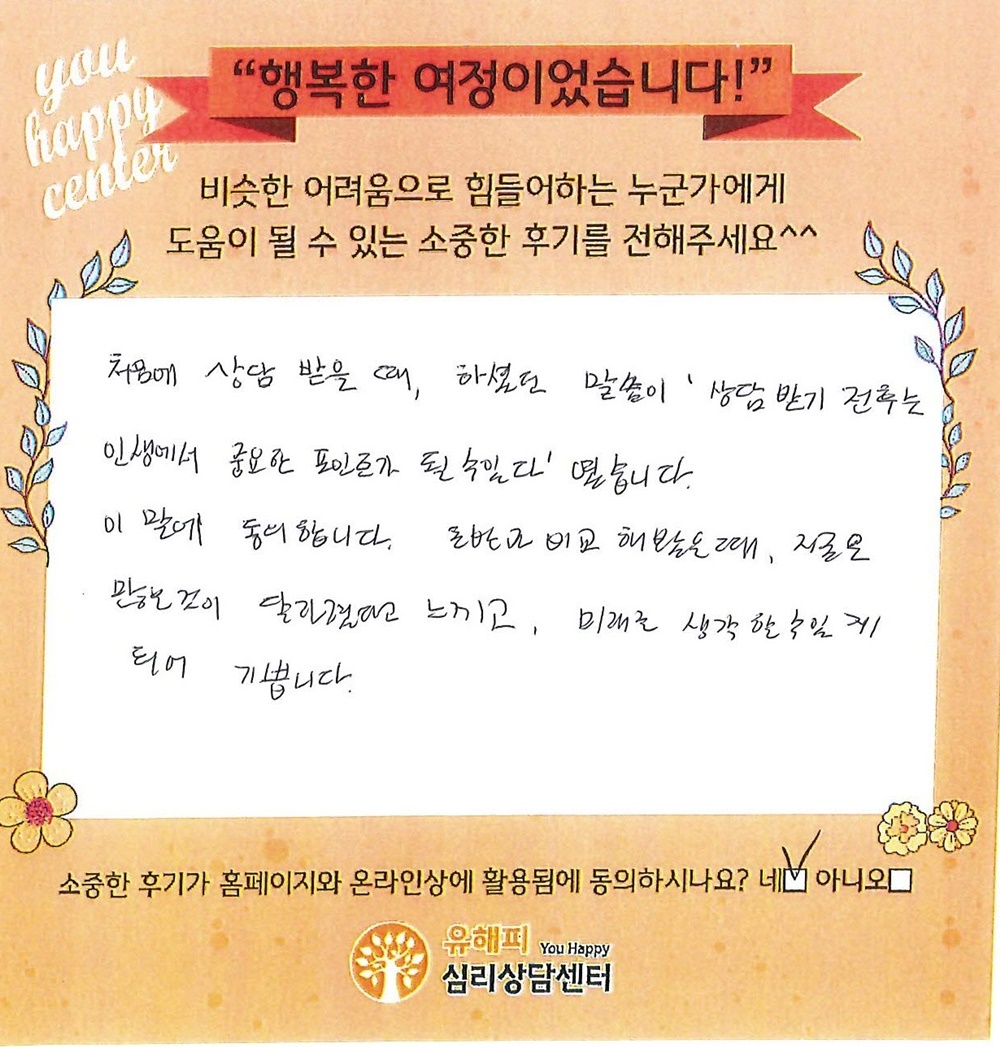 you
happy
center
“행복한 여정이었습니다!”
비슷한 어려움으로 힘들어하는 누군가에게
도움이 될 수 있는 소중한 후기를 전해주세요^^
처음에 상담 받을 때, 하셨던 말씀이 '상담받기 전후는
인생에서 중요한 포인트가 될 수있다'였습니다.
이 말에 동의합니다. 비교 해봤을때,
많은것이 달라졌다고 느끼고, 미래를 생각 할 수있게
되어 기쁩니다.
소중한 후기가 홈페이지와 온라인상에 활용됨에 동의하시나요? 네 아니오
유해피 You Happy
심리상담센터